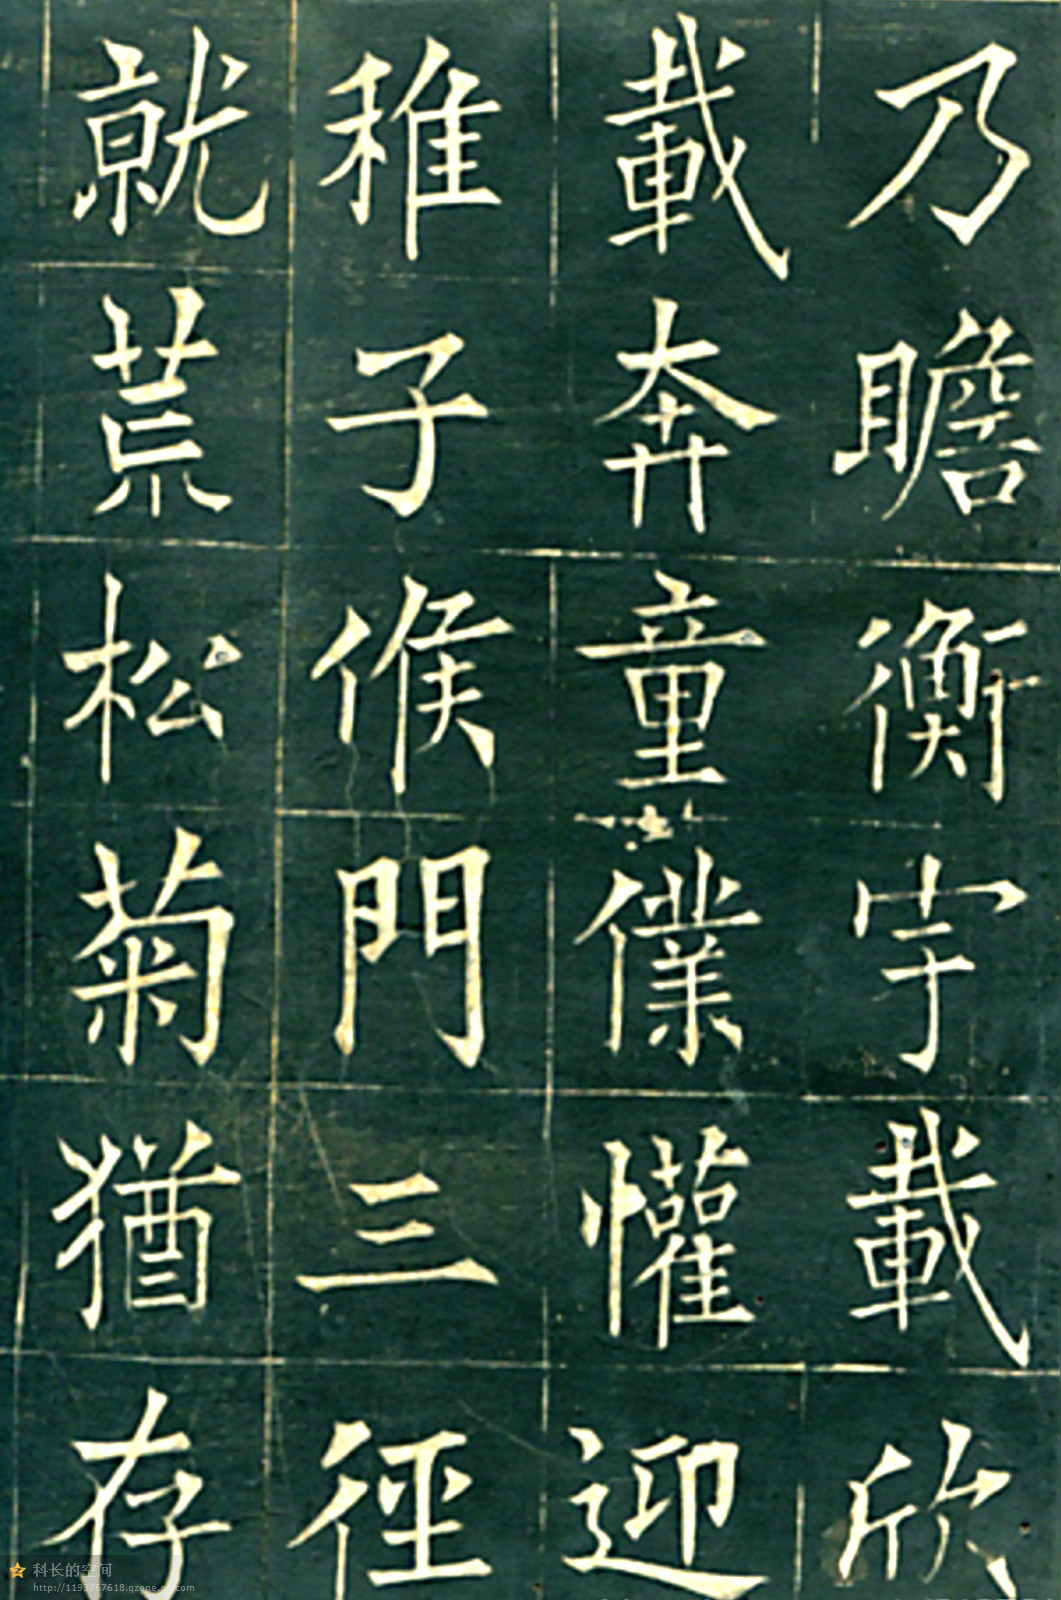 乃瞻衡宇載欣
載奔童僕懽迎
稚子候門三徑
就荒松菊猶存
科长的空间
http://1193767618.qzone.qq.com